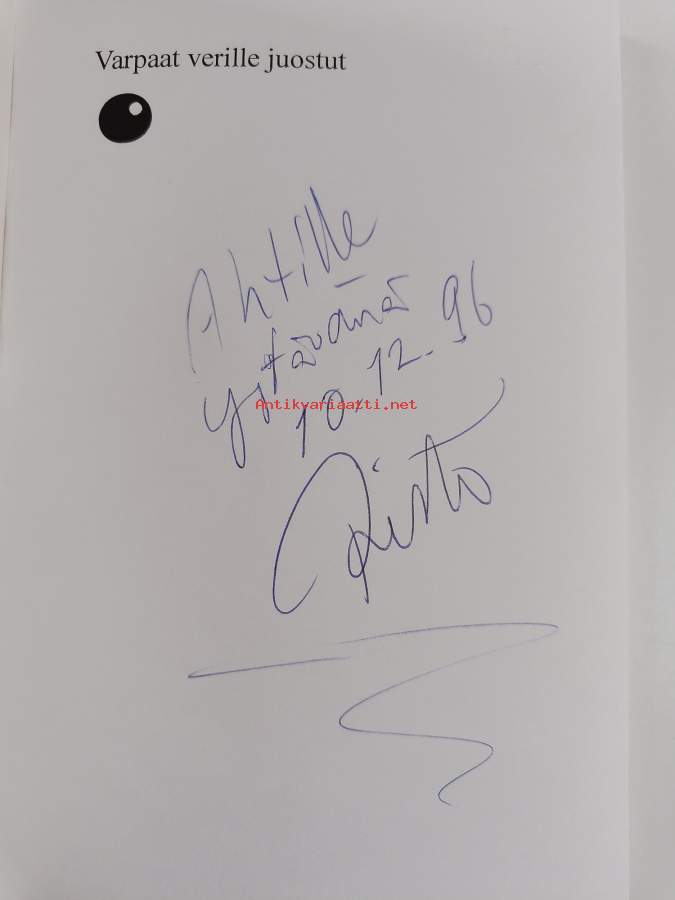 Varpaat verille juostut
Ahtille
ystävänä
10.12.96
Antikvariaatti.net
Risto